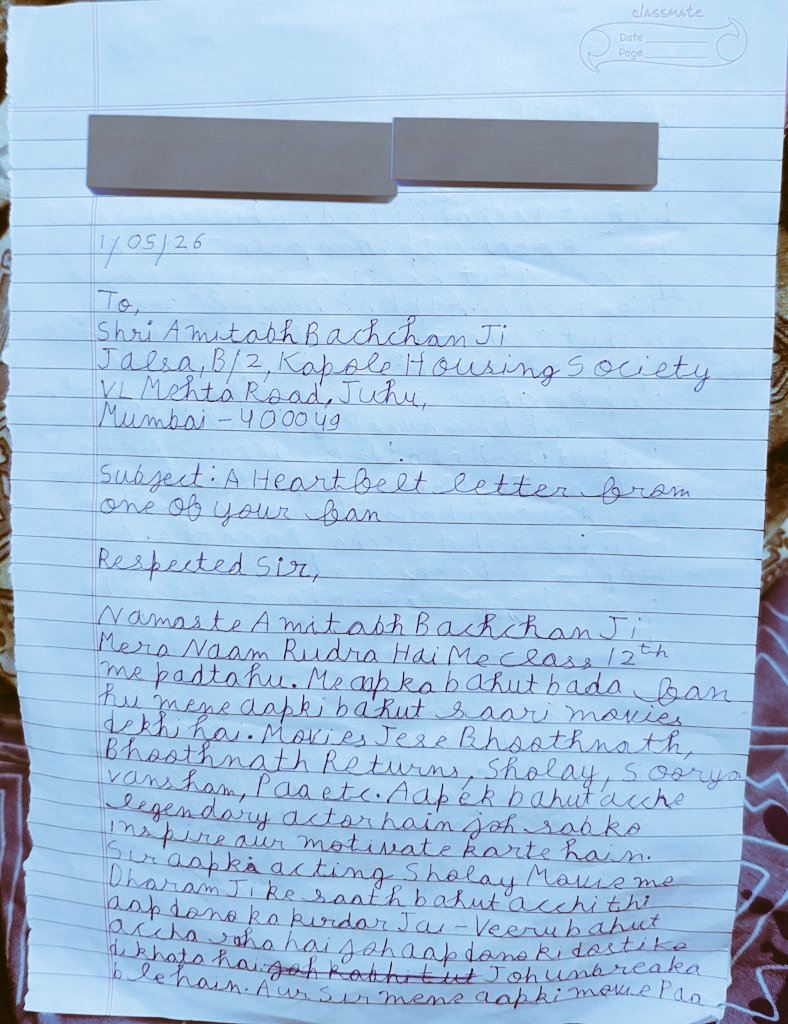 classmate
Date
Page
1/05/26
To,
Shri Amitabh Bachchan Ji
Jalsa, B/2, Kapole Housing Society
VL Mehta Road, Juhu,
Mumbai - 400049
Subject: A Heartfelt letter from
one of your fan
Respected Sir,
Namaste Amitabh Bachchan Ji
Mera Naam Rudra Hai Me Class 12th
me padta hu. Me aapka bahut bada fan
hu mene aapki bahut saari movies
dekhi hai. Movies Jese Bhoothnath,
Bhoothnath Returns, Sholay, Soorya
vansham, Paa etc. Aap ek bahut acche
legendary actor hain joh sabko
inspire aur motivate karte hain.
Sir aapki acting Sholay Movie me
Dharam Ji ke saath bahut acchi thi
aap dono ka kirdar Jai-Veeru bahut
accha raha hai joh aap dono ki dosti ko
dikhata hai joh kabhi tut Joh unbreaka
ble hain. Aur Sir mene aapki movie Paa